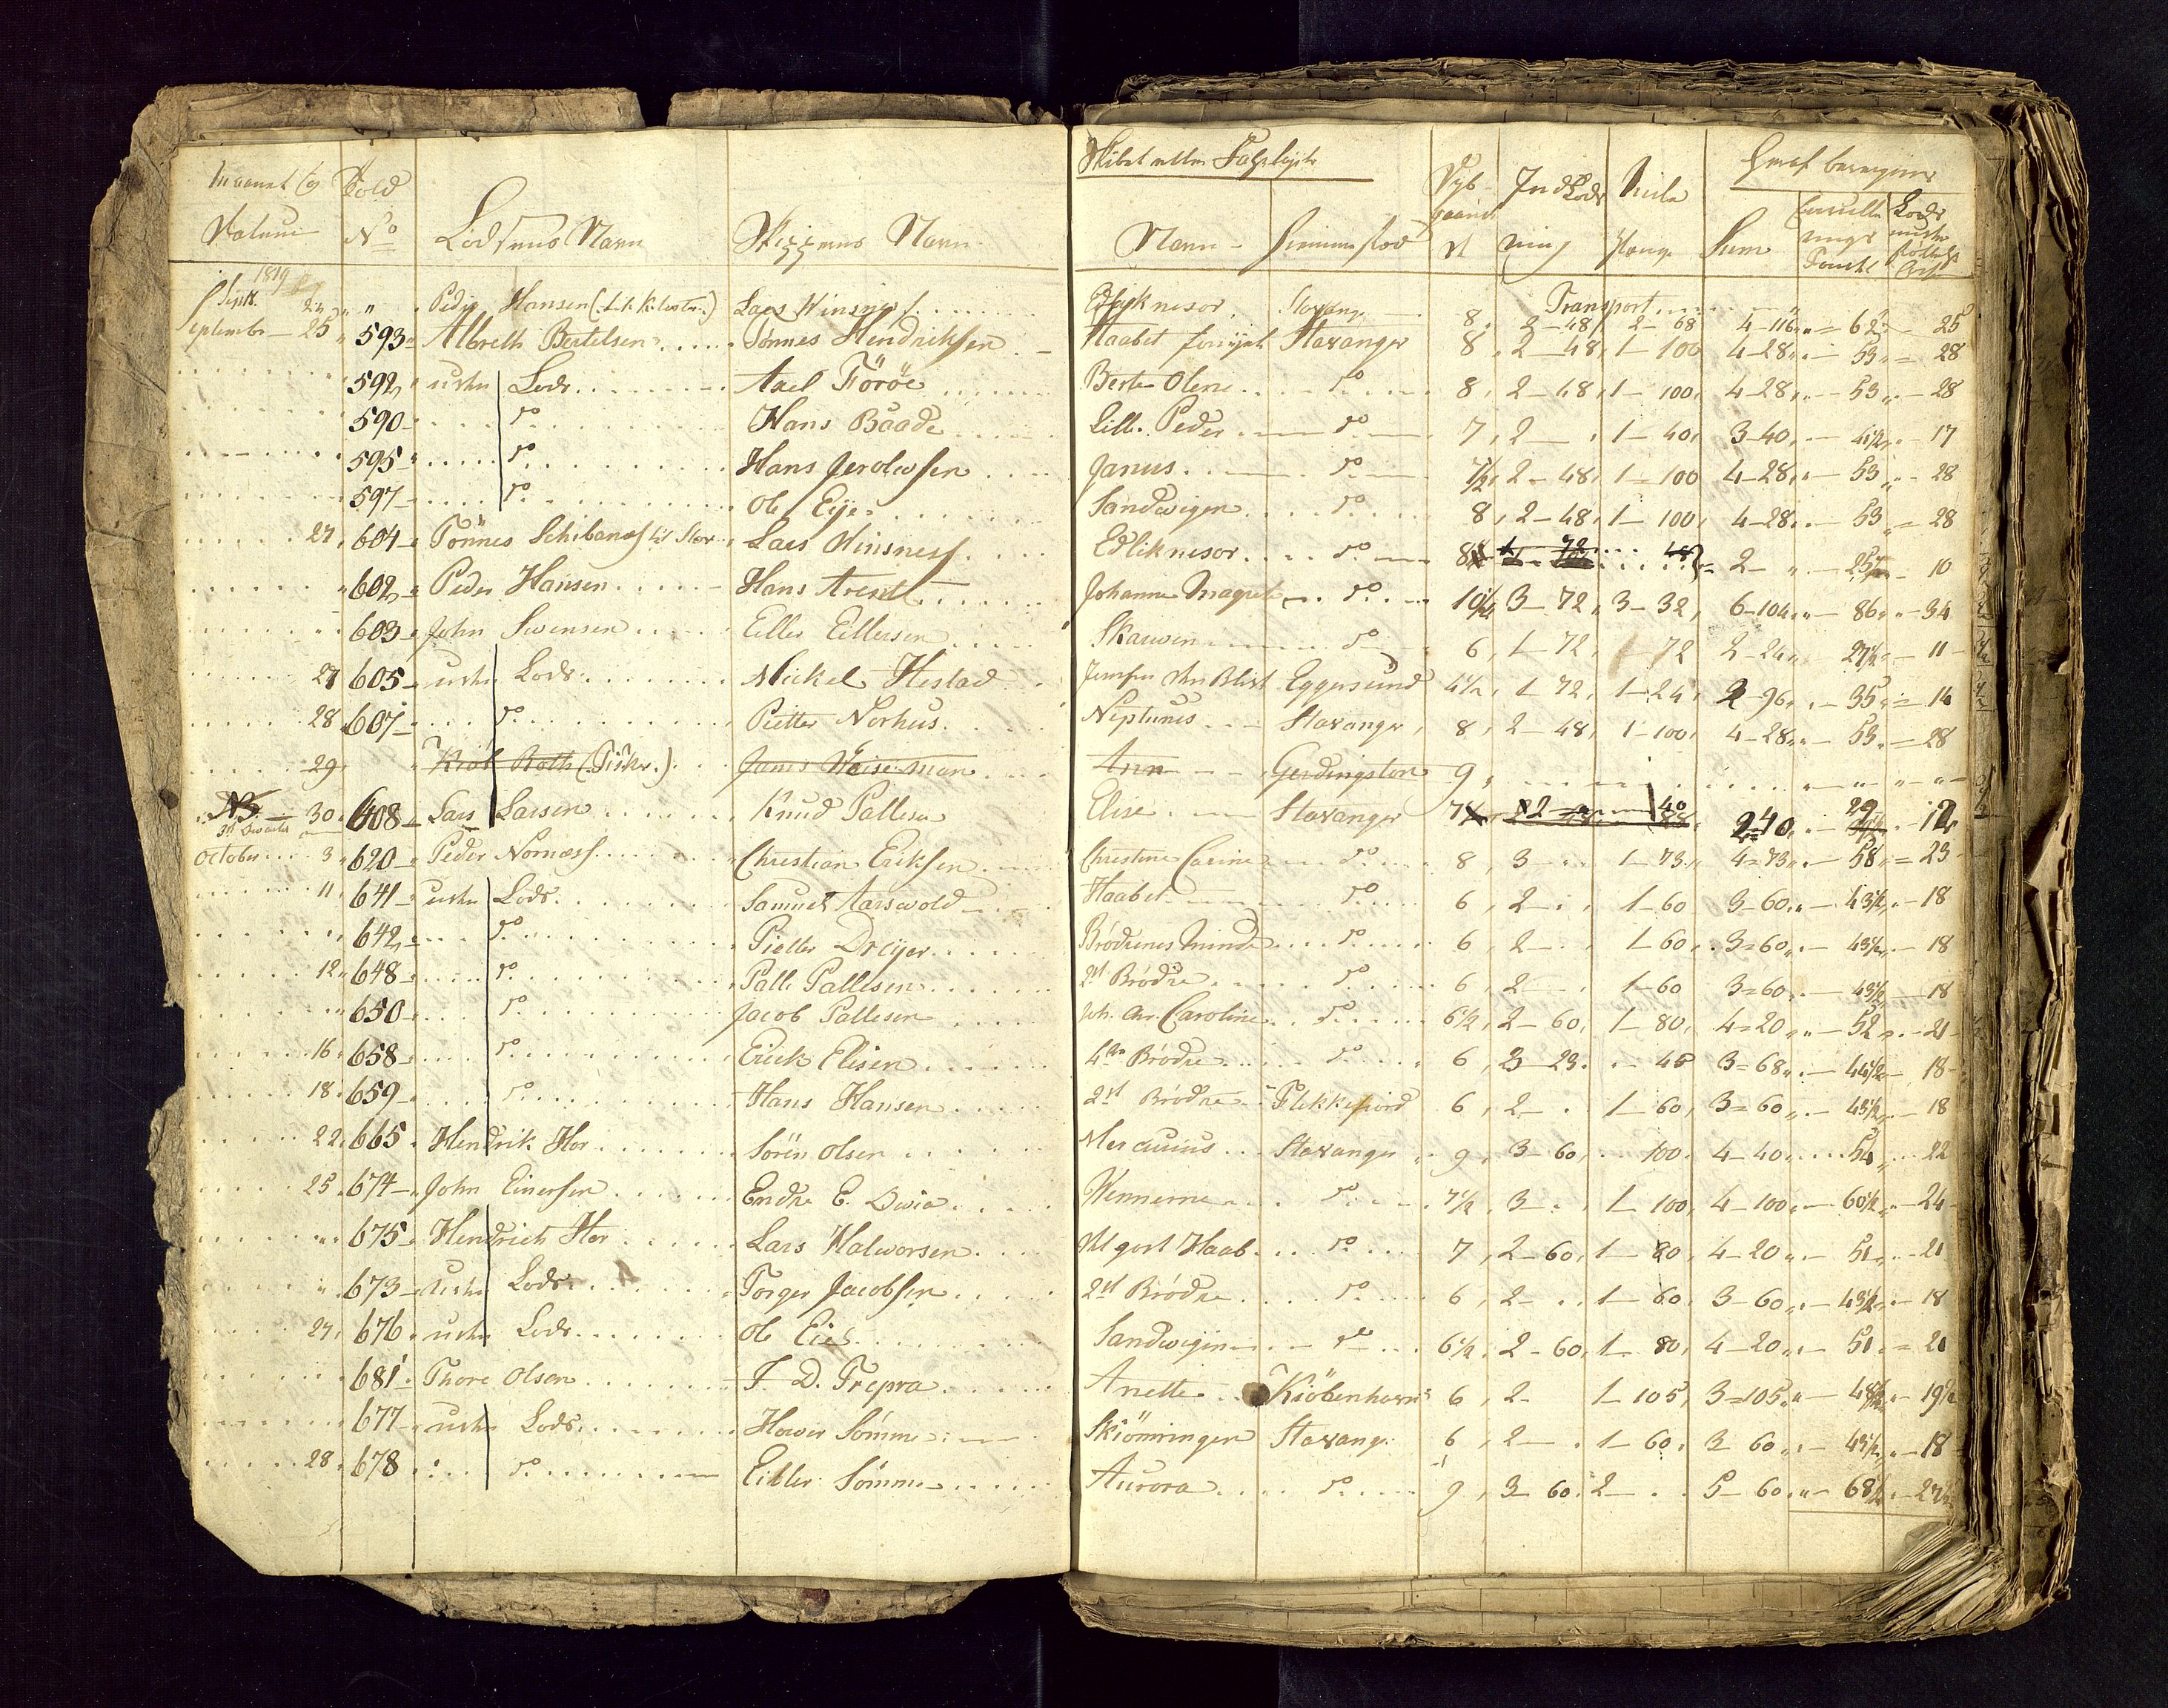 Maanet og Told Skibet eller Fartøiets Dyb- Ind Lods Mile Heraf beregnes
Datum No Lodsens Navn Skippens Navn Navn Hiemmestæd gaaende ning penge Sum Lods
1819
Sept. 24 " Peder Hansen Lars Winsnes Stavang. 8 Transport 2-48 2-68 4-116 62 25
September 25 593 Albreth Bertelsen Tønnes Hendriksen Haabet Stavanger 8 2-48 1-100 4-28 53 28
592 uden Lods Axel Föröe Berte Olene do 8 2-48 1-100 4-28 53 28
590 do Hans Baade Lille Peder do 7 2 1-40 3-40 41½ 17
595 do Hans Jerolwsen Janus do 7½ 2-48 1-100 4-28 53 28
597 do Ole Eije Sandwigen do 8 2-48 1-100 4-28 53 28
27 604 Tönnes Lars Winsness do 8 2 10
602 Peder Hansen Hans Arentz Johanne Magrete do 10¼ 3-72 3-32 6-104 86 34
603 John Swensen Eiller Eillersen do 6 1-72 72 2-24 27½ 11
27 605 uden Lods Mickel Hestad Eggersund 4½ 1-72 1-24 2-96 35 14
28 607 do Pieter Norhus Neptunus Stavanger 8 2-48 1-100 4-28 53 28
29 Roth (Fisker) James Wiseman Ann 9
NB 30 608 Lars Larsen Knud Pallesen Elise Stavanger 7 2 40 2-40 29 12
October 3 620 Peder Nornæss Christian Eriksen Christine Carine do 8 3 1-73 4-73 58 23
11 641 uden Lods Samuel Aarswold Haabet do 6 2 1-60 3-60 43½ 18
642 do Pieller Dreijer Brödrenes Minde do 6 2 1-60 3-60 43½ 18
12 648 do Palle Pallesen 2de Brödre do 6 2 1-60 3-60 43½ 18
650 do Jacob Pallesen Joh. Chr. Caroline do 6½ 2-60 1-80 4-20 52 21
16 658 do Erick Elisen 4re Brödre do 6 3-23 45 3-68 44½ 18
18 659 do Hans Hansen 2de Brödre Flekkefiord 6 2 1-60 3-60 43½ 18
22 665 Hendrik Hor Sören Olsen Mercurius Stavanger 9 3-60 100 4-40 54 22
25 674 John Einersen Endre E. Wennerne do 7½ 3 1-100 4-100 60½ 24
675 Hendrich Hor Lars Halworsen Et got Haab do 7 2-60 1-80 4-20 51 21
673 uden Lods Torger Jacobsen 2de Brödre do 6 2 1-60 3-60 43½ 18
27 676 uden Lods Ole Eie Sandwigen do 6½ 2-60 1-80 4-20 51 21
681 Thore Olsen Anette Kiöbenhavn 6 2 1-105 3-105 48½ 19½
677 uden Lods Sömme Skiömringen Stavang. 6 2 1-60 3-60 43½ 18
28 678 do Eiller Sömme Aurora do 9 3-60 2 5-60 68½ 27½